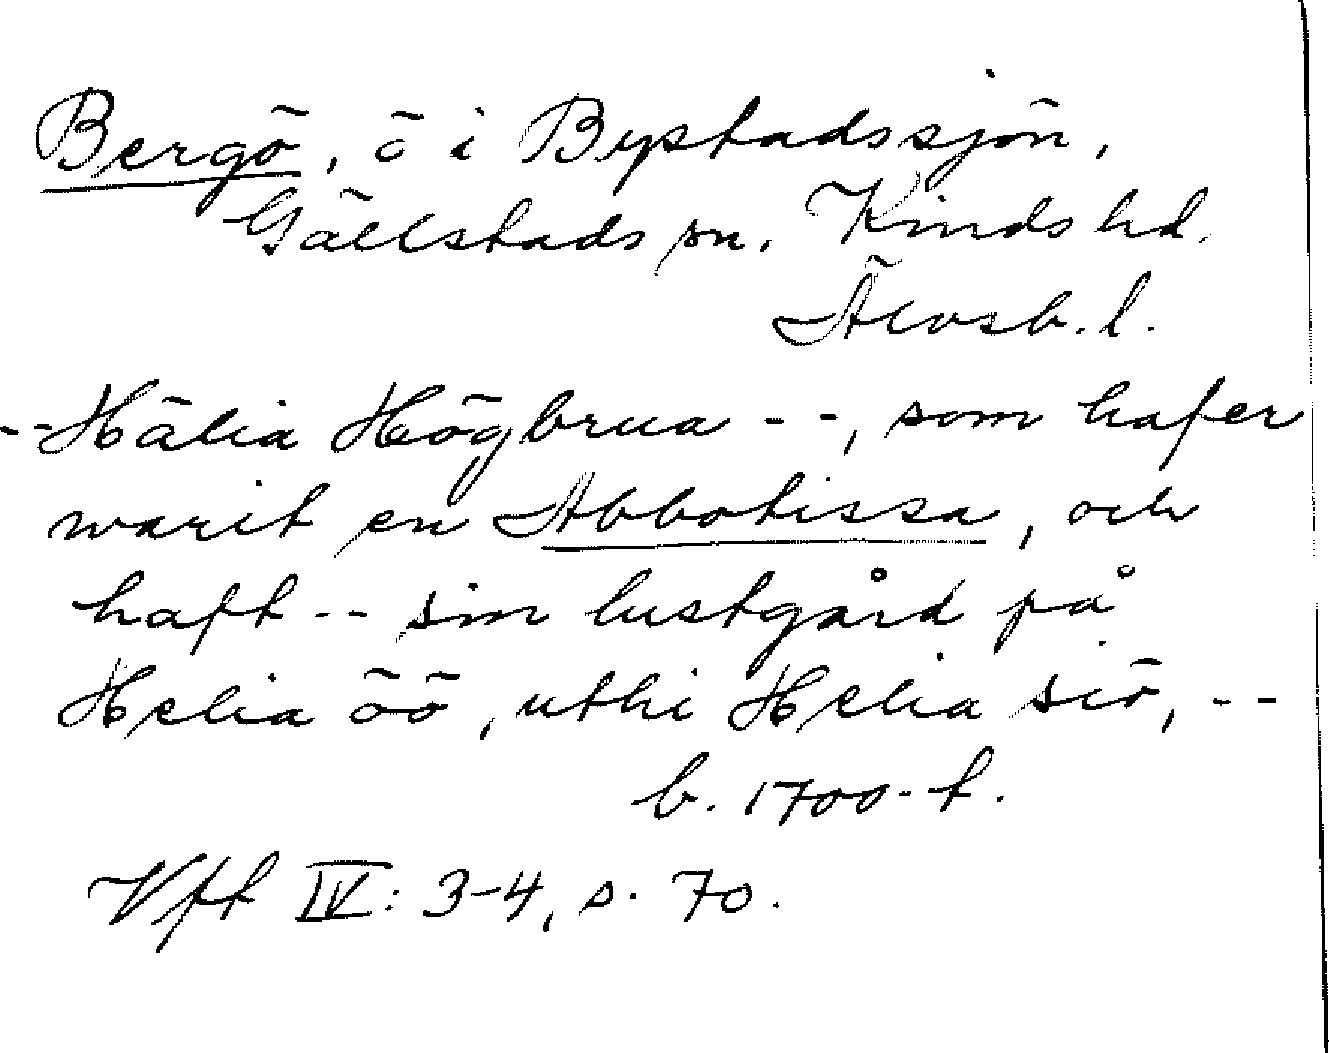 Bergö, ö i Bystadssjön,
Gällstads sn. Kinds hd.
Älvsb. l.
-- Hälia Högbrua --, som hafer
warit en Abbotissa, och
haft -- sin lustgård på
Helia öö, uthi Helia siö, --
b. 1700-t.
Vft IV: 3-4, s. 70.